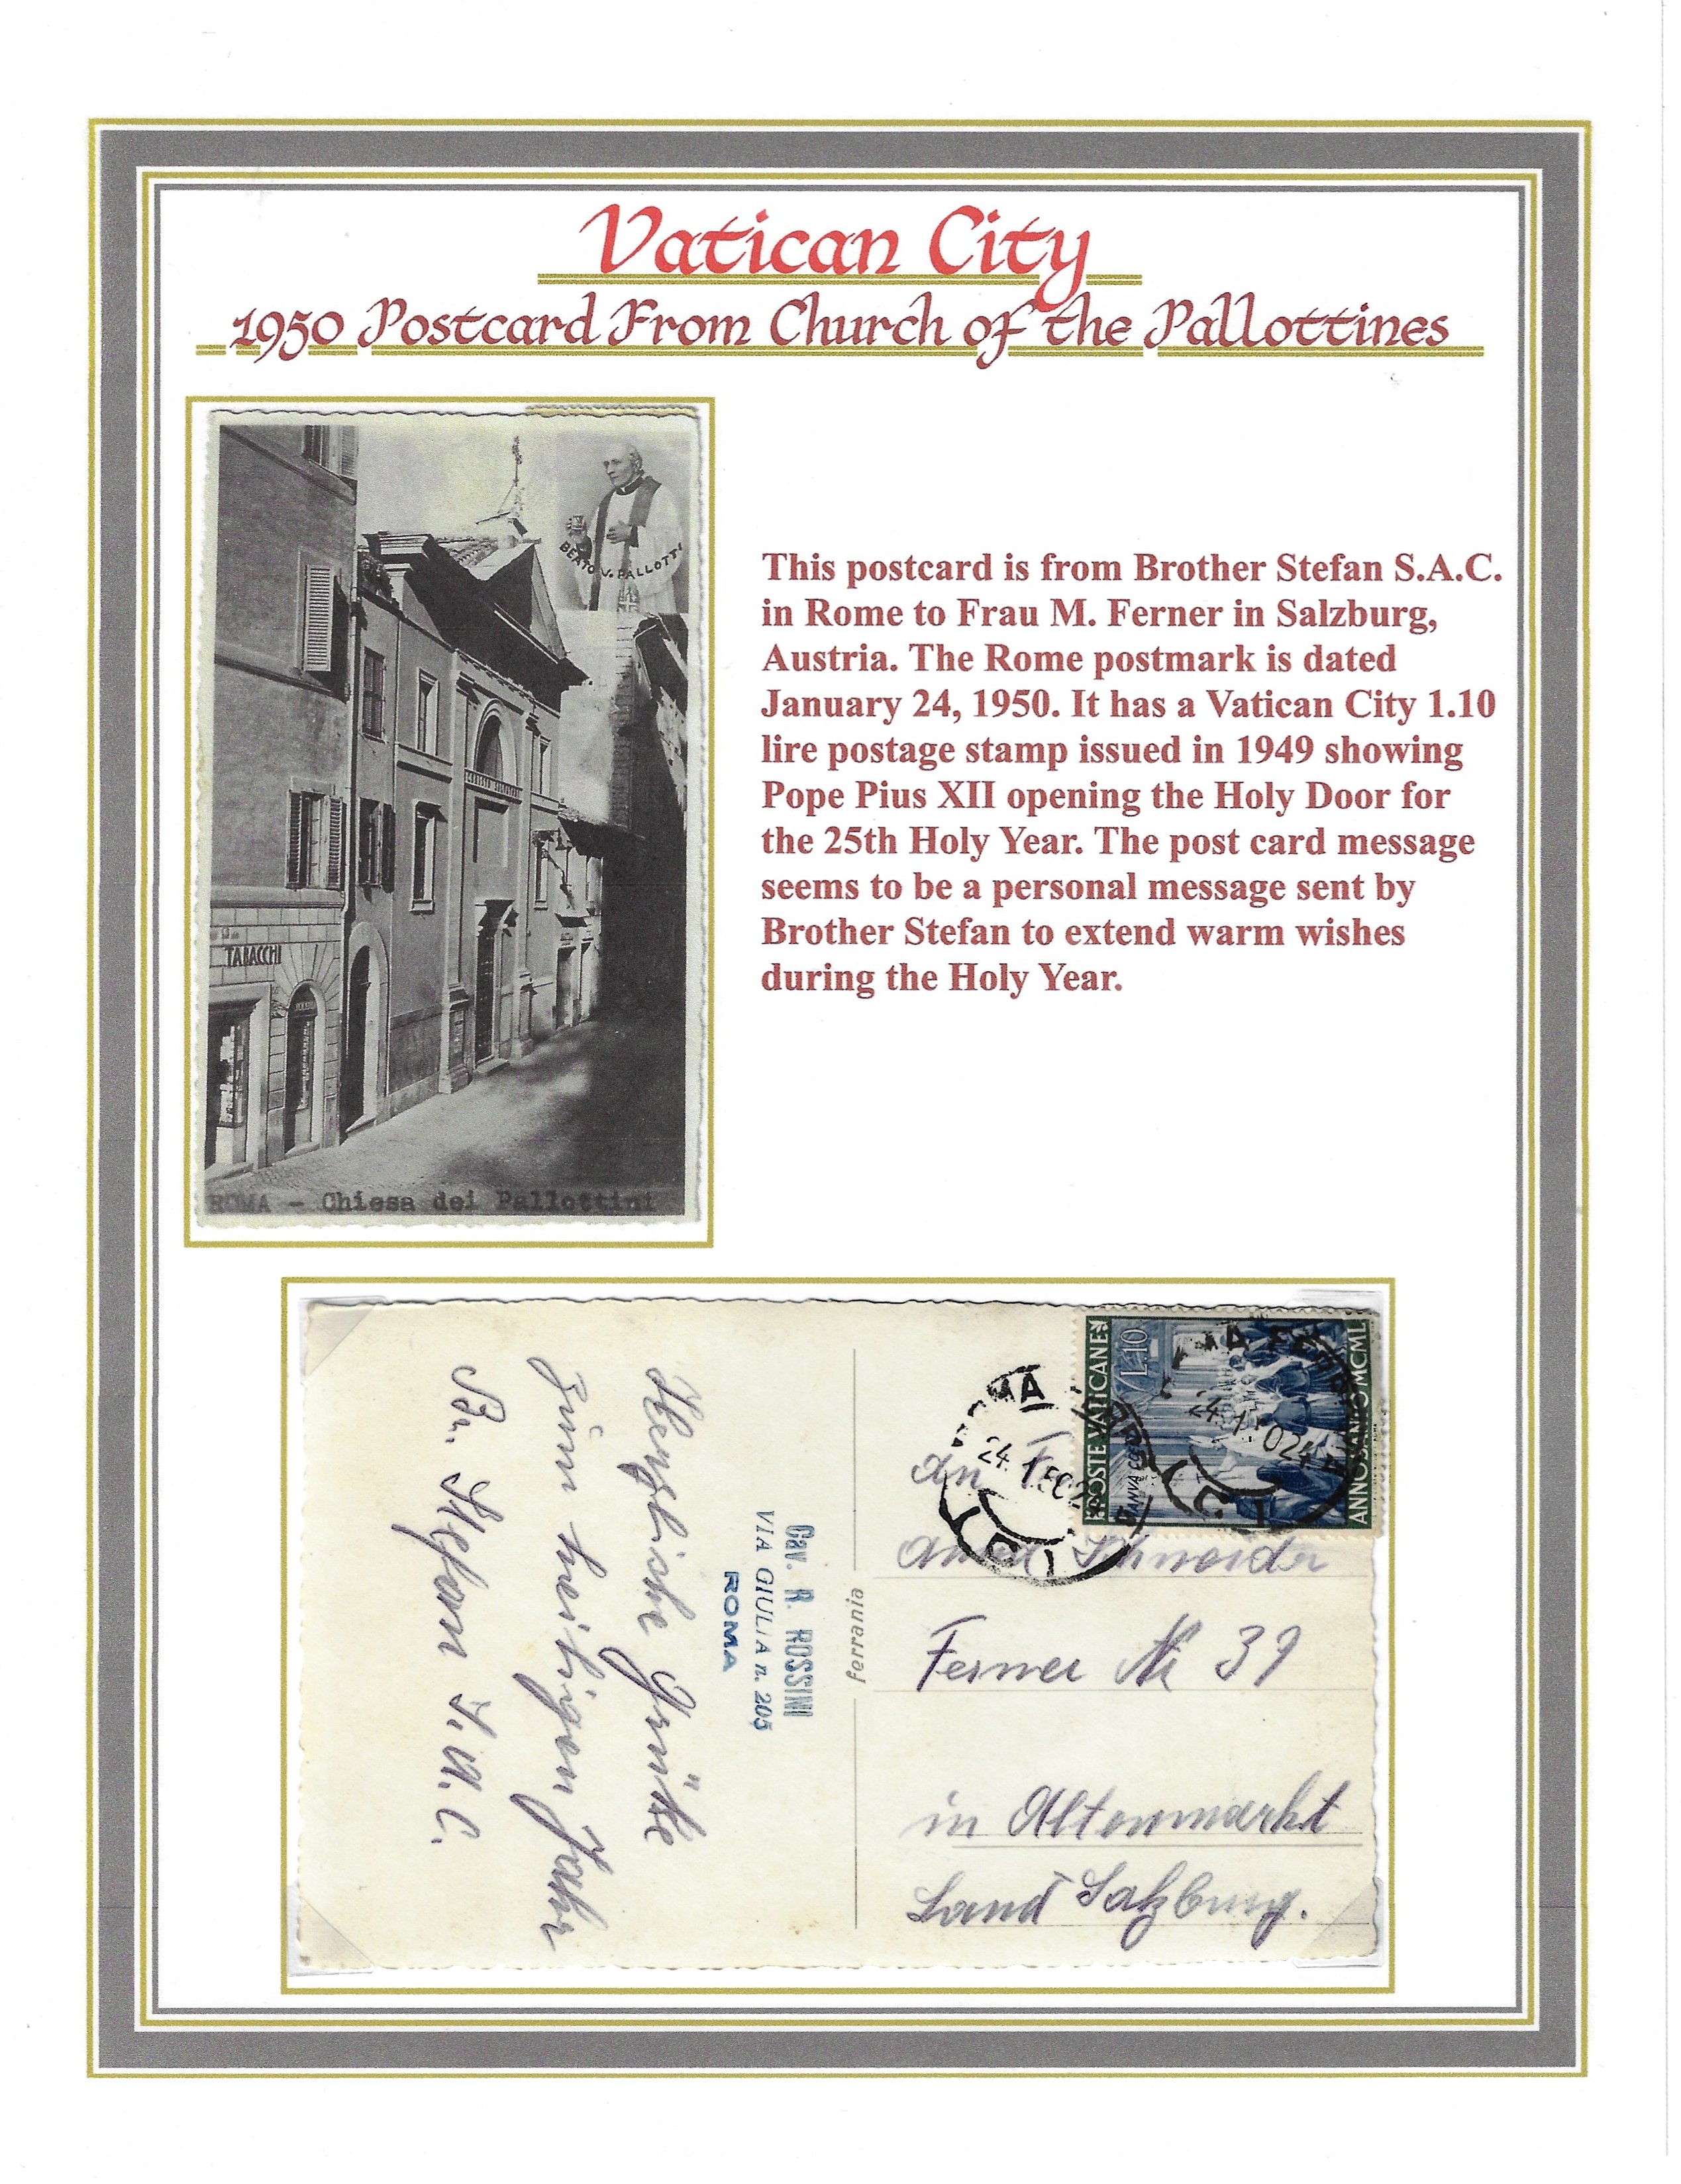 Vatican City
1950 Postcard From Church of the Pallottines
BEATO V. PALLOTTI
TABACCHI
ROMA - Chiesa dei Pallottini
This postcard is from Brother Stefan S.A.C.
in Rome to Frau M. Ferner in Salzburg,
Austria. The Rome postmark is dated
January 24, 1950. It has a Vatican City 1.10
lire postage stamp issued in 1949 showing
Pope Pius XII opening the Holy Door for
the 25th Holy Year. The post card message
seems to be a personal message sent by
Brother Stefan to extend warm wishes
during the Holy Year.
Herzliche Grüße
zum heiligen Jahr
Br. Stefan S.A.C.
Cav. R. ROSSINI
VIA GIULIA n. 205
ROMA
ferrania
POSTE VATICANE
L.10
ANNO SANTO MCML
ROMA
24.1
An
Schneider
Ferner Nr 39
in Altenmarkt
Land Salzburg.